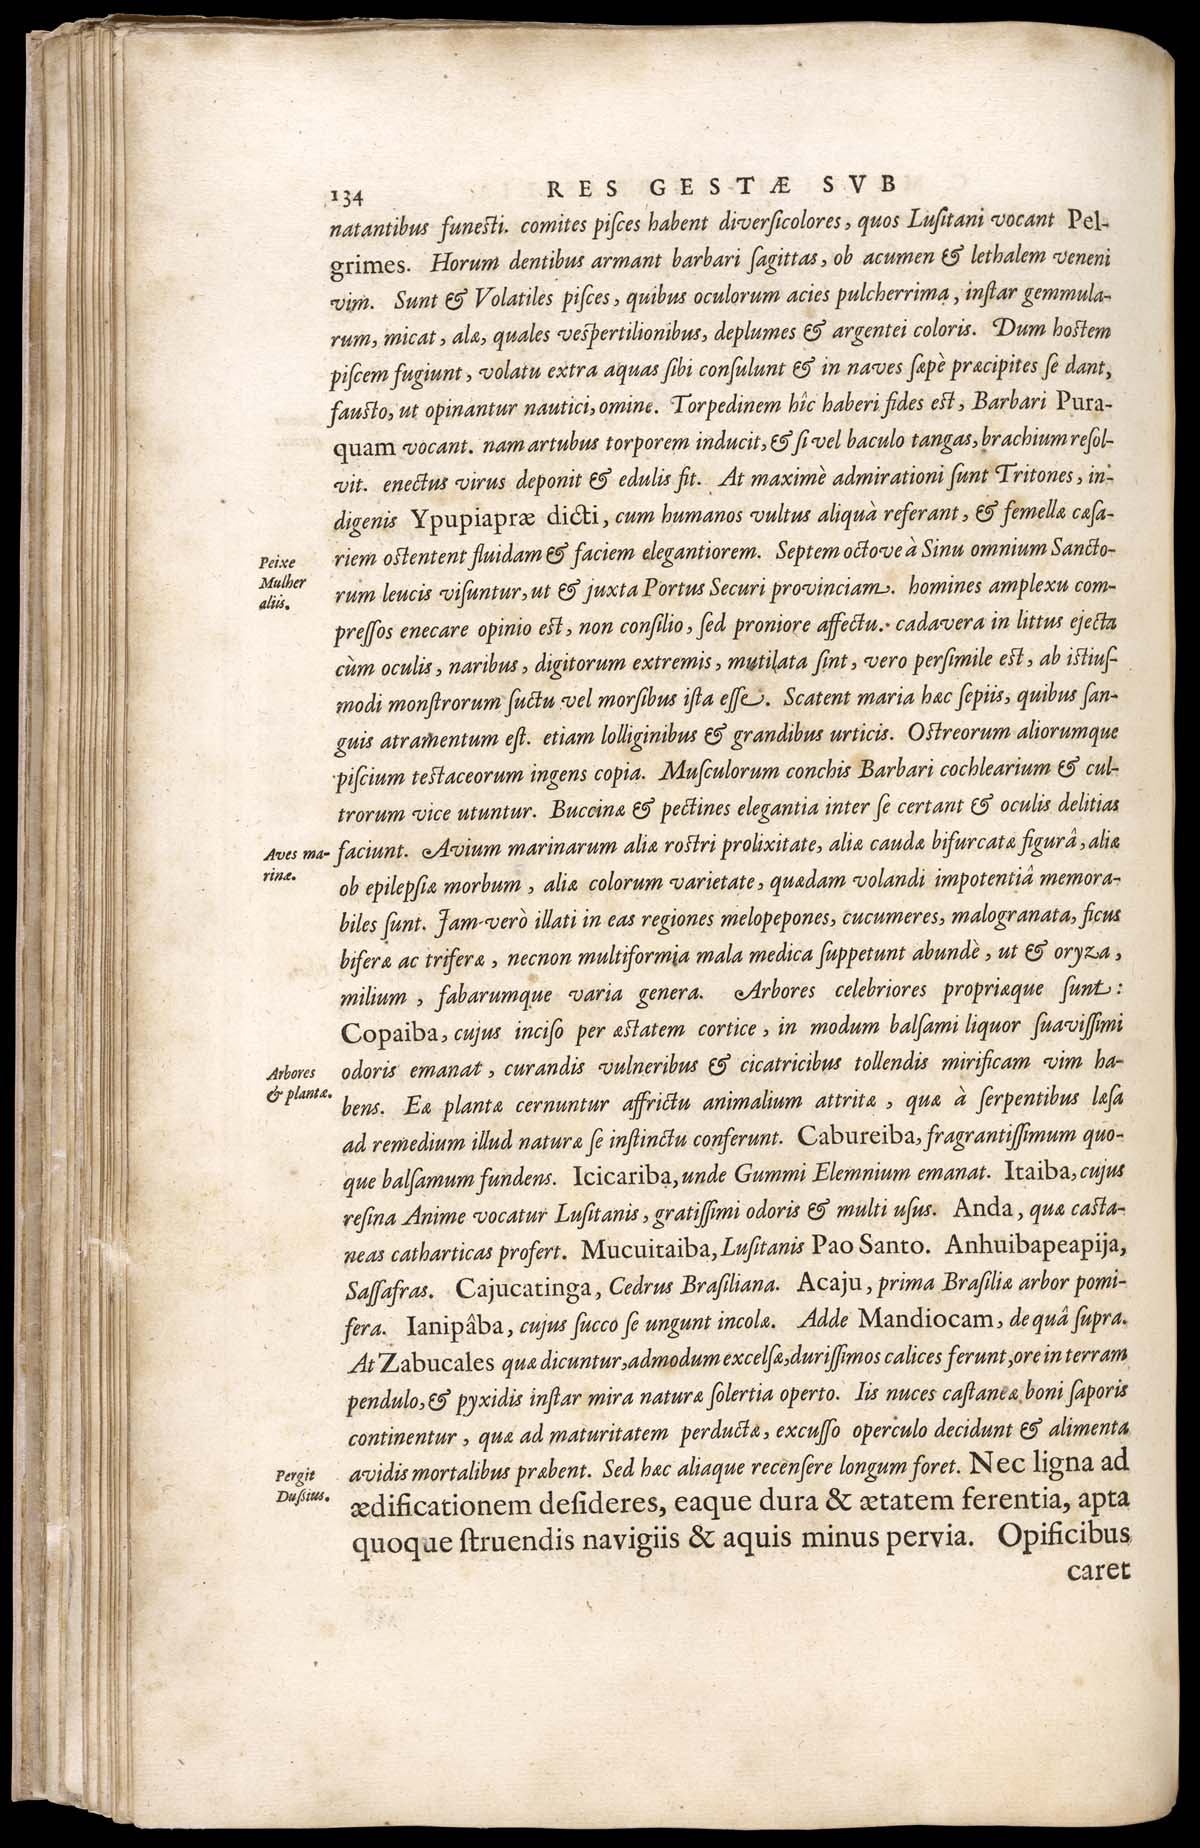 134 RES GESTÆ SVB
natantibus funesti. comites piſces habent diverſicolores, quos Luſitani vocant Pel-
grimes. Horum dentibus armant barbari ſagittas, ob acumen & lethalem veneni
vim. Sunt & Volatiles piſces, quibus oculorum acies pulcherrima, inſtar gemmula-
rum, micat, alæ, quales veſpertilionibus, deplumes & argentei coloris. Dum hostem
piſcem fugiunt, volatu extra aquas ſibi conſulunt & in naves ſæpè præcipites ſe dant,
fausto, ut opinantur nautici, omine. Torpedinem hîc haberi fides est, Barbari Pura-
quam vocant. nam artubus torporem inducit, & ſi vel baculo tangas, brachium reſol-
vit. enectus virus deponit & edulis fit. At maximè admirationi ſunt Tritones, in-
digenis Ypupiapræ dicti, cum humanos vultus aliquà referant, & femellæ cæſa-
riem ostentent fluidam & faciem elegantiorem. Septem octove à Sinu omnium Sancto-
Peixe
Mulher
aliis.
rum leucis viſuntur, ut & juxta Portus Securi provinciam. homines amplexu com-
preſſos enecare opinio est, non conſilio, ſed proniore affectu. cadavera in littus ejecta
cùm oculis, naribus, digitorum extremis, mutilata ſint, vero perſimile est, ab istiuſ-
modi monſtrorum ſuctu vel morſibus iſta eſſe. Scatent maria hæc ſepiis, quibus ſan-
guis atramentum eſt. etiam lolliginibus & grandibus urticis. Ostreorum aliorumque
piſcium testaceorum ingens copia. Muſculorum conchis Barbari cochlearium & cul-
trorum vice utuntur. Buccinæ & pectines elegantia inter ſe certant & oculis delitias
Aves ma-
rinæ.
faciunt. Avium marinarum aliæ rostri prolixitate, aliæ caudæ bifurcatæ figurâ, aliæ
ob epilepſiæ morbum, aliæ colorum varietate, quædam volandi impotentiâ memora-
biles ſunt. Jam verò illati in eas regiones melopepones, cucumeres, malogranata, ficus
biferæ ac triferæ, necnon multiformia mala medica ſuppetunt abundè, ut & oryza,
milium, fabarumque varia genera. Arbores celebriores propriæque ſunt:
Copaiba, cujus inciſo per æstatem cortice, in modum balſami liquor ſuaviſſimi
Arbores
& plantæ.
odoris emanat, curandis vulneribus & cicatricibus tollendis mirificam vim ha-
bens. Eæ plantæ cernuntur affrictu animalium attritæ, quæ à ſerpentibus læſa
ad remedium illud naturæ ſe inſtinctu conferunt. Cabureiba, fragrantiſſimum quo-
que balſamum fundens. Icicariba, unde Gummi Elemnium emanat. Itaiba, cujus
reſina Anime vocatur Luſitanis, gratiſſimi odoris & multi uſus. Anda, quæ casta-
neas catharticas profert. Mucuitaiba, Luſitanis Pao Santo. Anhuibapeapija,
Saſſafras. Cajucatinga, Cedrus Braſiliana. Acaju, prima Braſiliæ arbor pomi-
fera. Ianipâba, cujus ſucco ſe ungunt incolæ. Adde Mandiocam, de quâ ſupra.
At Zabucales quæ dicuntur, admodum excelſæ, duriſſimos calices ferunt, ore in terram
pendulo, & pyxidis inſtar mira naturæ ſolertia operto. Iis nuces caſtaneæ boni ſaporis
continentur, quæ ad maturitatem perductæ, excuſſo operculo decidunt & alimenta
Pergit
Duſsius.
avidis mortalibus præbent. Sed hæc aliaque recenſere longum foret. Nec ligna ad
ædificationem deſideres, eaque dura & ætatem ferentia, apta
quoque ſtruendis navigiis & aquis minus pervia. Opificibus
caret